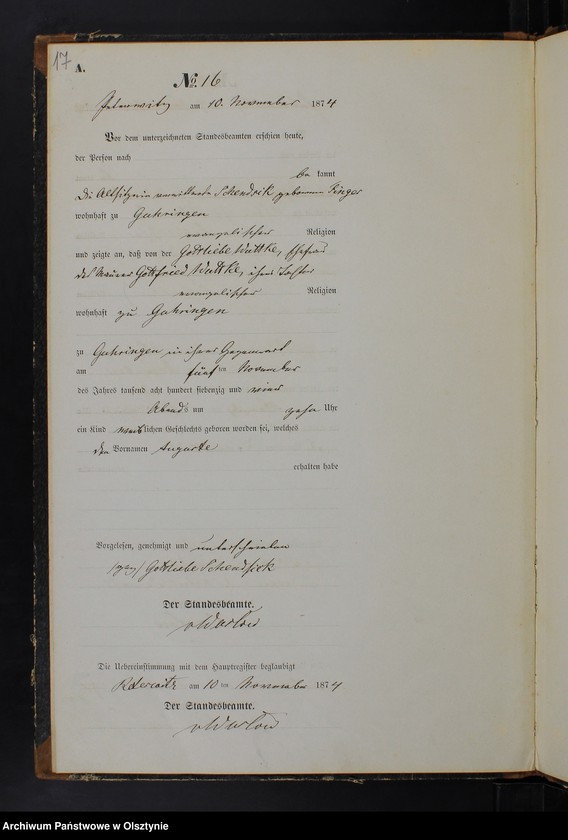 17
A.
No. 16
am 10. November 1874
Vor dem unterzeichneten Standesbeamten erschien heute,
der Person nach
be kannt
die Altsitzerin Schendrik geborene
wohnhaft zu Guhringen
evangelischer Religion
und zeigte an, daß von der Gottliebe Wuttke, Ehefrau
des Maurer Gottfried Wuttke, ihrer Tochter
evangelischer Religion
wohnhaft zu Guhringen
zu Guhringen in ihrer Gegenwart
am fünf ten November
des Jahres tausend acht hundert siebenzig und vier
Abends um zehn Uhr
ein Kind weiblichen Geschlechts geboren worden sei, welches
den Vornamen Auguste
erhalten habe
Vorgelesen, genehmigt und unterschrieben
Gottliebe
Der Standesbeamte.
Die Uebereinstimmung mit dem Hauptregister beglaubigt
am 10 ten November 1874
Der Standesbeamte.
Archiwum Państwowe w Olsztynie